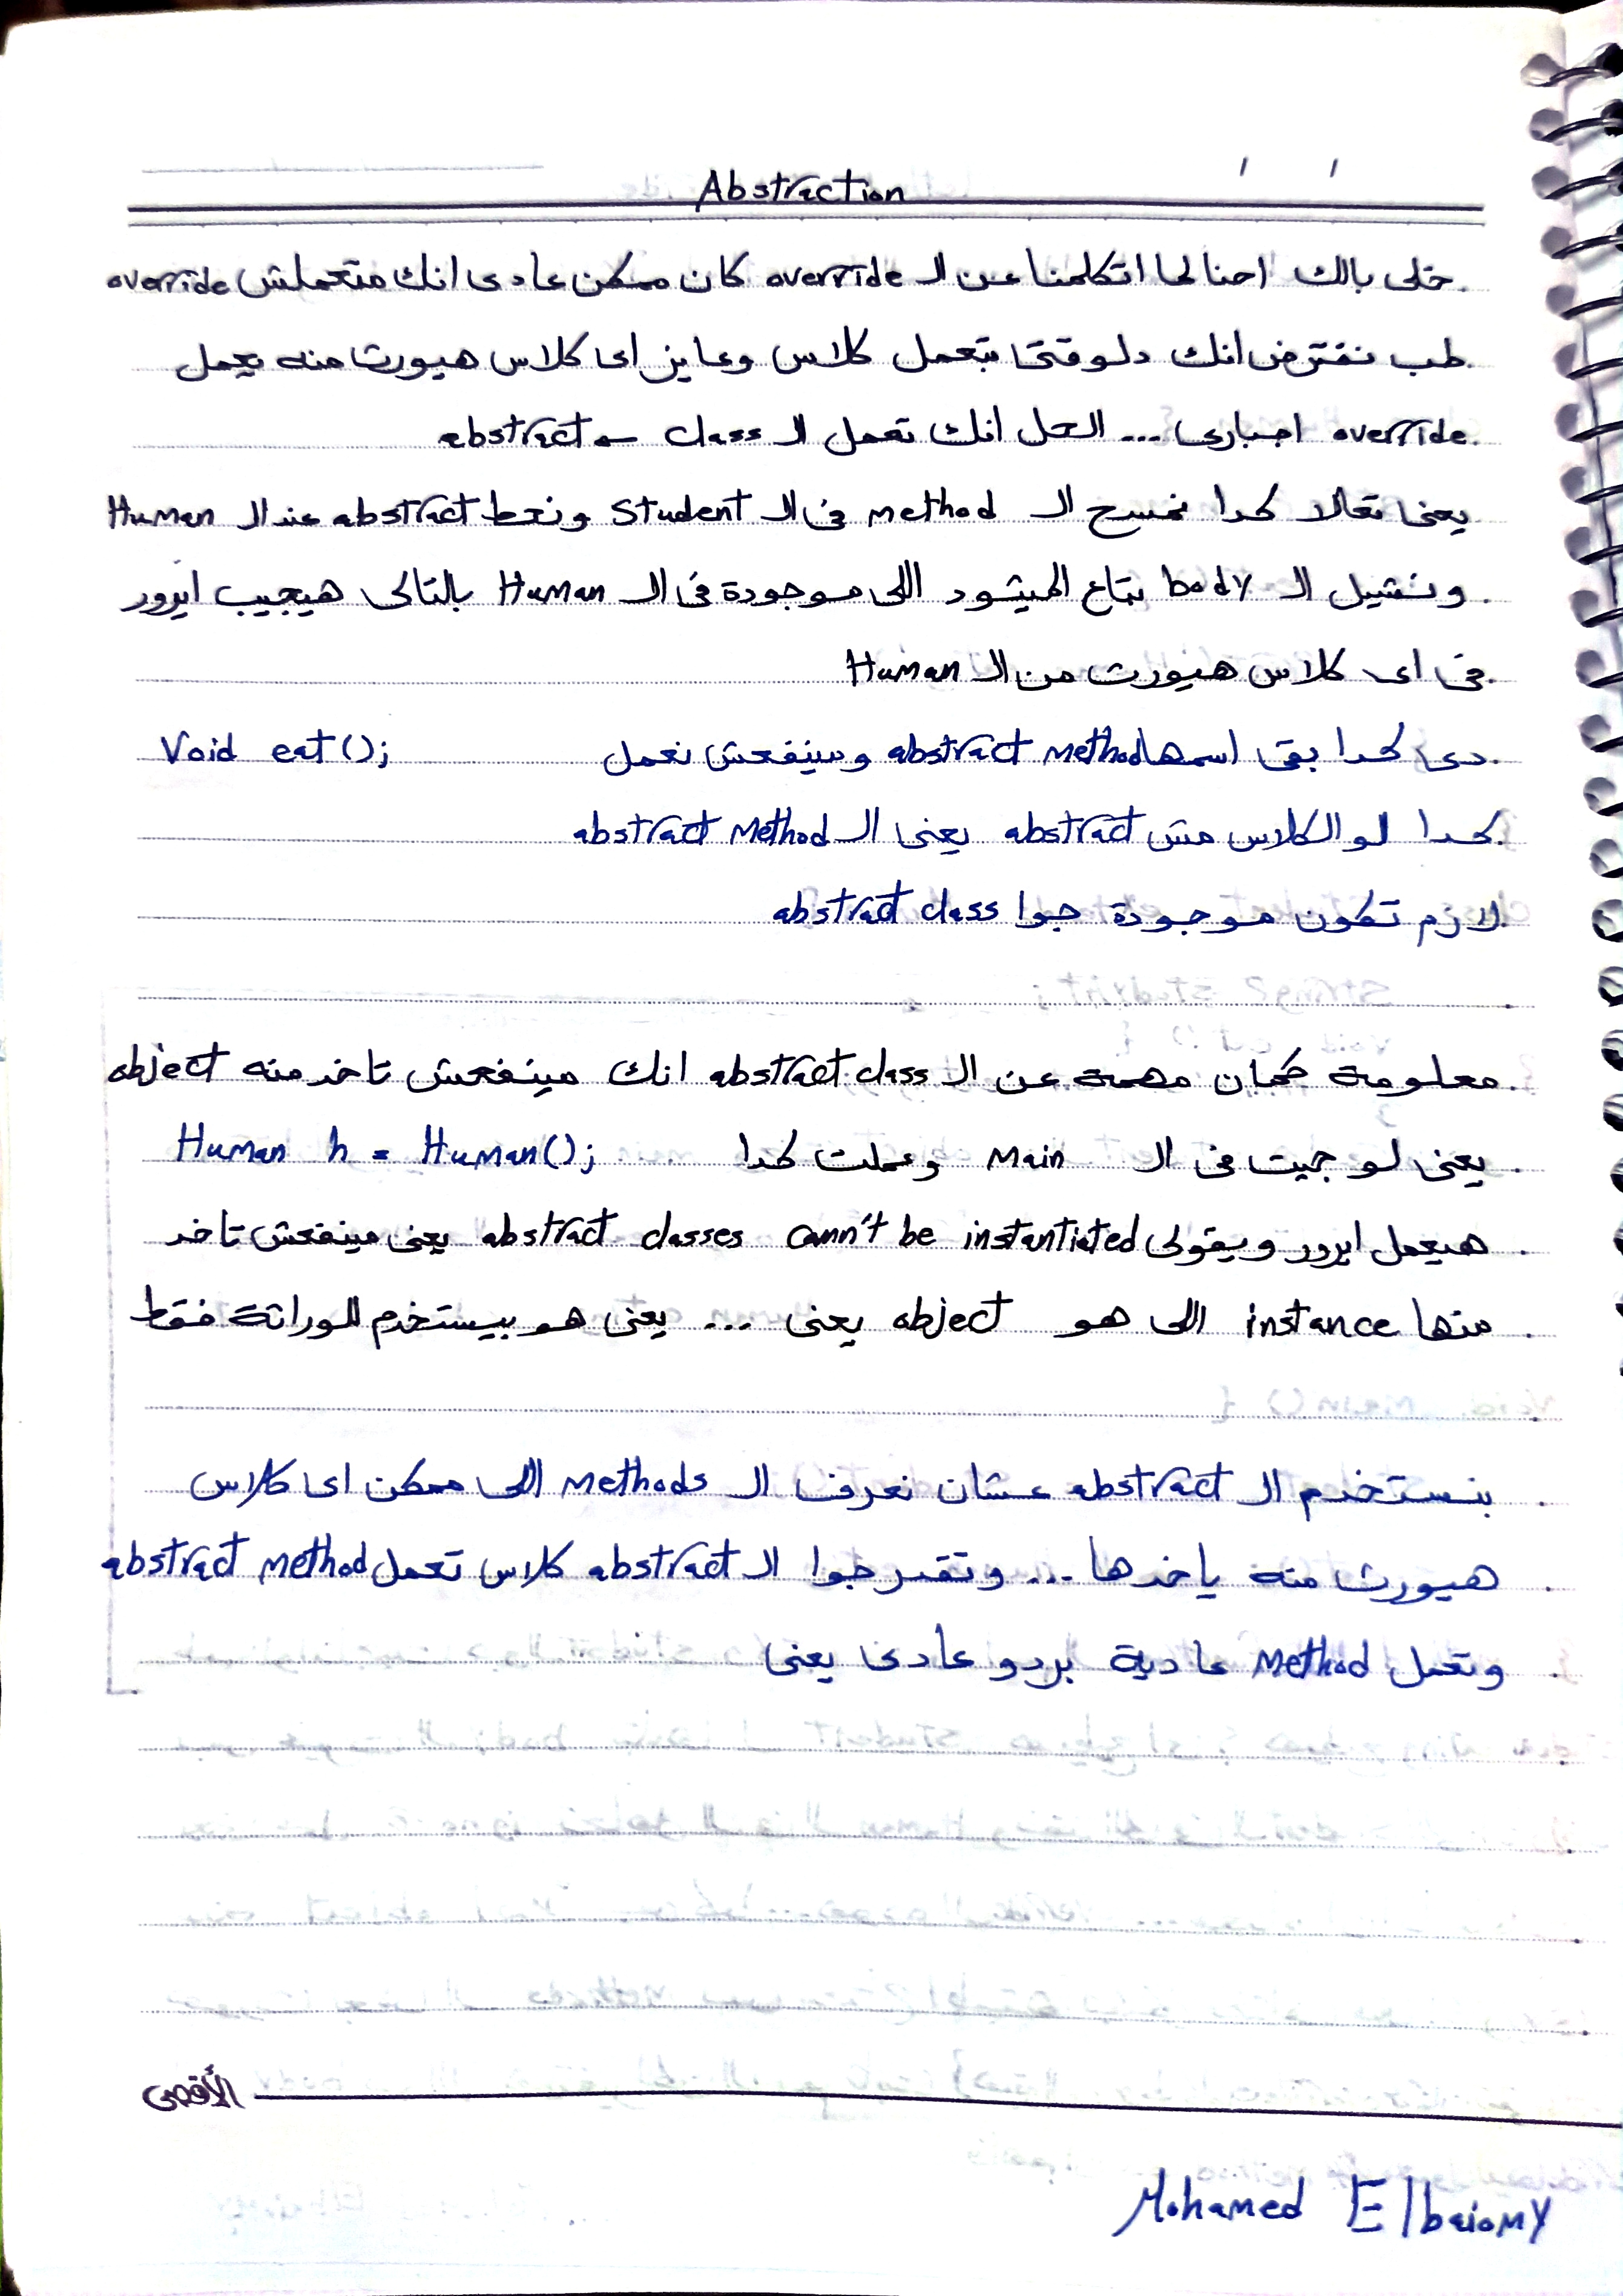 Abstraction
خلى بالك احنا لما اتكلمنا عن ال override كان ممكن عادى انك متعملش override
طب نفترض انك دلوقتى بتعمل كلاس وعايز اى كلاس هيورث منه يعمل
override اجبارى ... الحل انك تعمل ال class abstract
يعنى تعالا كدا نمسح ال method فى ال Student ونحط abstract عند ال Human
ونشيل ال body بتاع الميثود اللى موجودة فى ال Human بالتالى هيجيب ايرور
فى اى كلاس هيورث من ال Human
دى كدا بقى اسمها abstract method ومينفعش نعمل Void eat();
كدا لو الكلاس مش abstract يعنى ال abstract Method
لازم تكون موجودة جوا abstract class
معلومة كمان مهمة عن ال abstract class انك مينفعش تاخد منه object
يعنى لو جيت فى ال Main وعملت كدا Human h = Human();
هيعمل ايرور ويقولى abstract classes cann't be instantiated يعنى مينفعش تاخد
منها instance اللى هو object يعنى ... يعنى هو بيستخدم للوراثة فقط
بنستخدم ال abstract عشان نعرف ال Methods اللى ممكن اى كلاس
هيورث منه ياخدها ... وتقدر جوا ال abstract كلاس تعمل abstract method
وتعمل Method عادية بردو عادى يعنى
الأقصى
Mohamed Elbaiomy